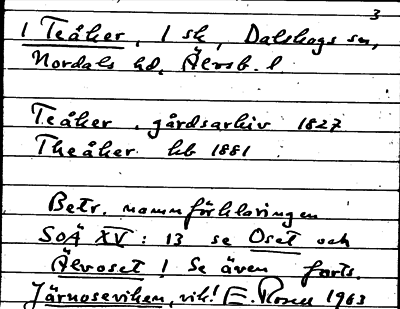 3
1 Teåker, 1 sk, Dalskogs sn,
Nordals hd, Älvsb. l.
Teåker, gårdsarkiv 1827
Theåker kb 1881
Betr. namnförklaringen
SOÄ XV: 13 se Oset och
Älvoset! Se även forts.
Järnoseviken, vik! E. Rosen 1963